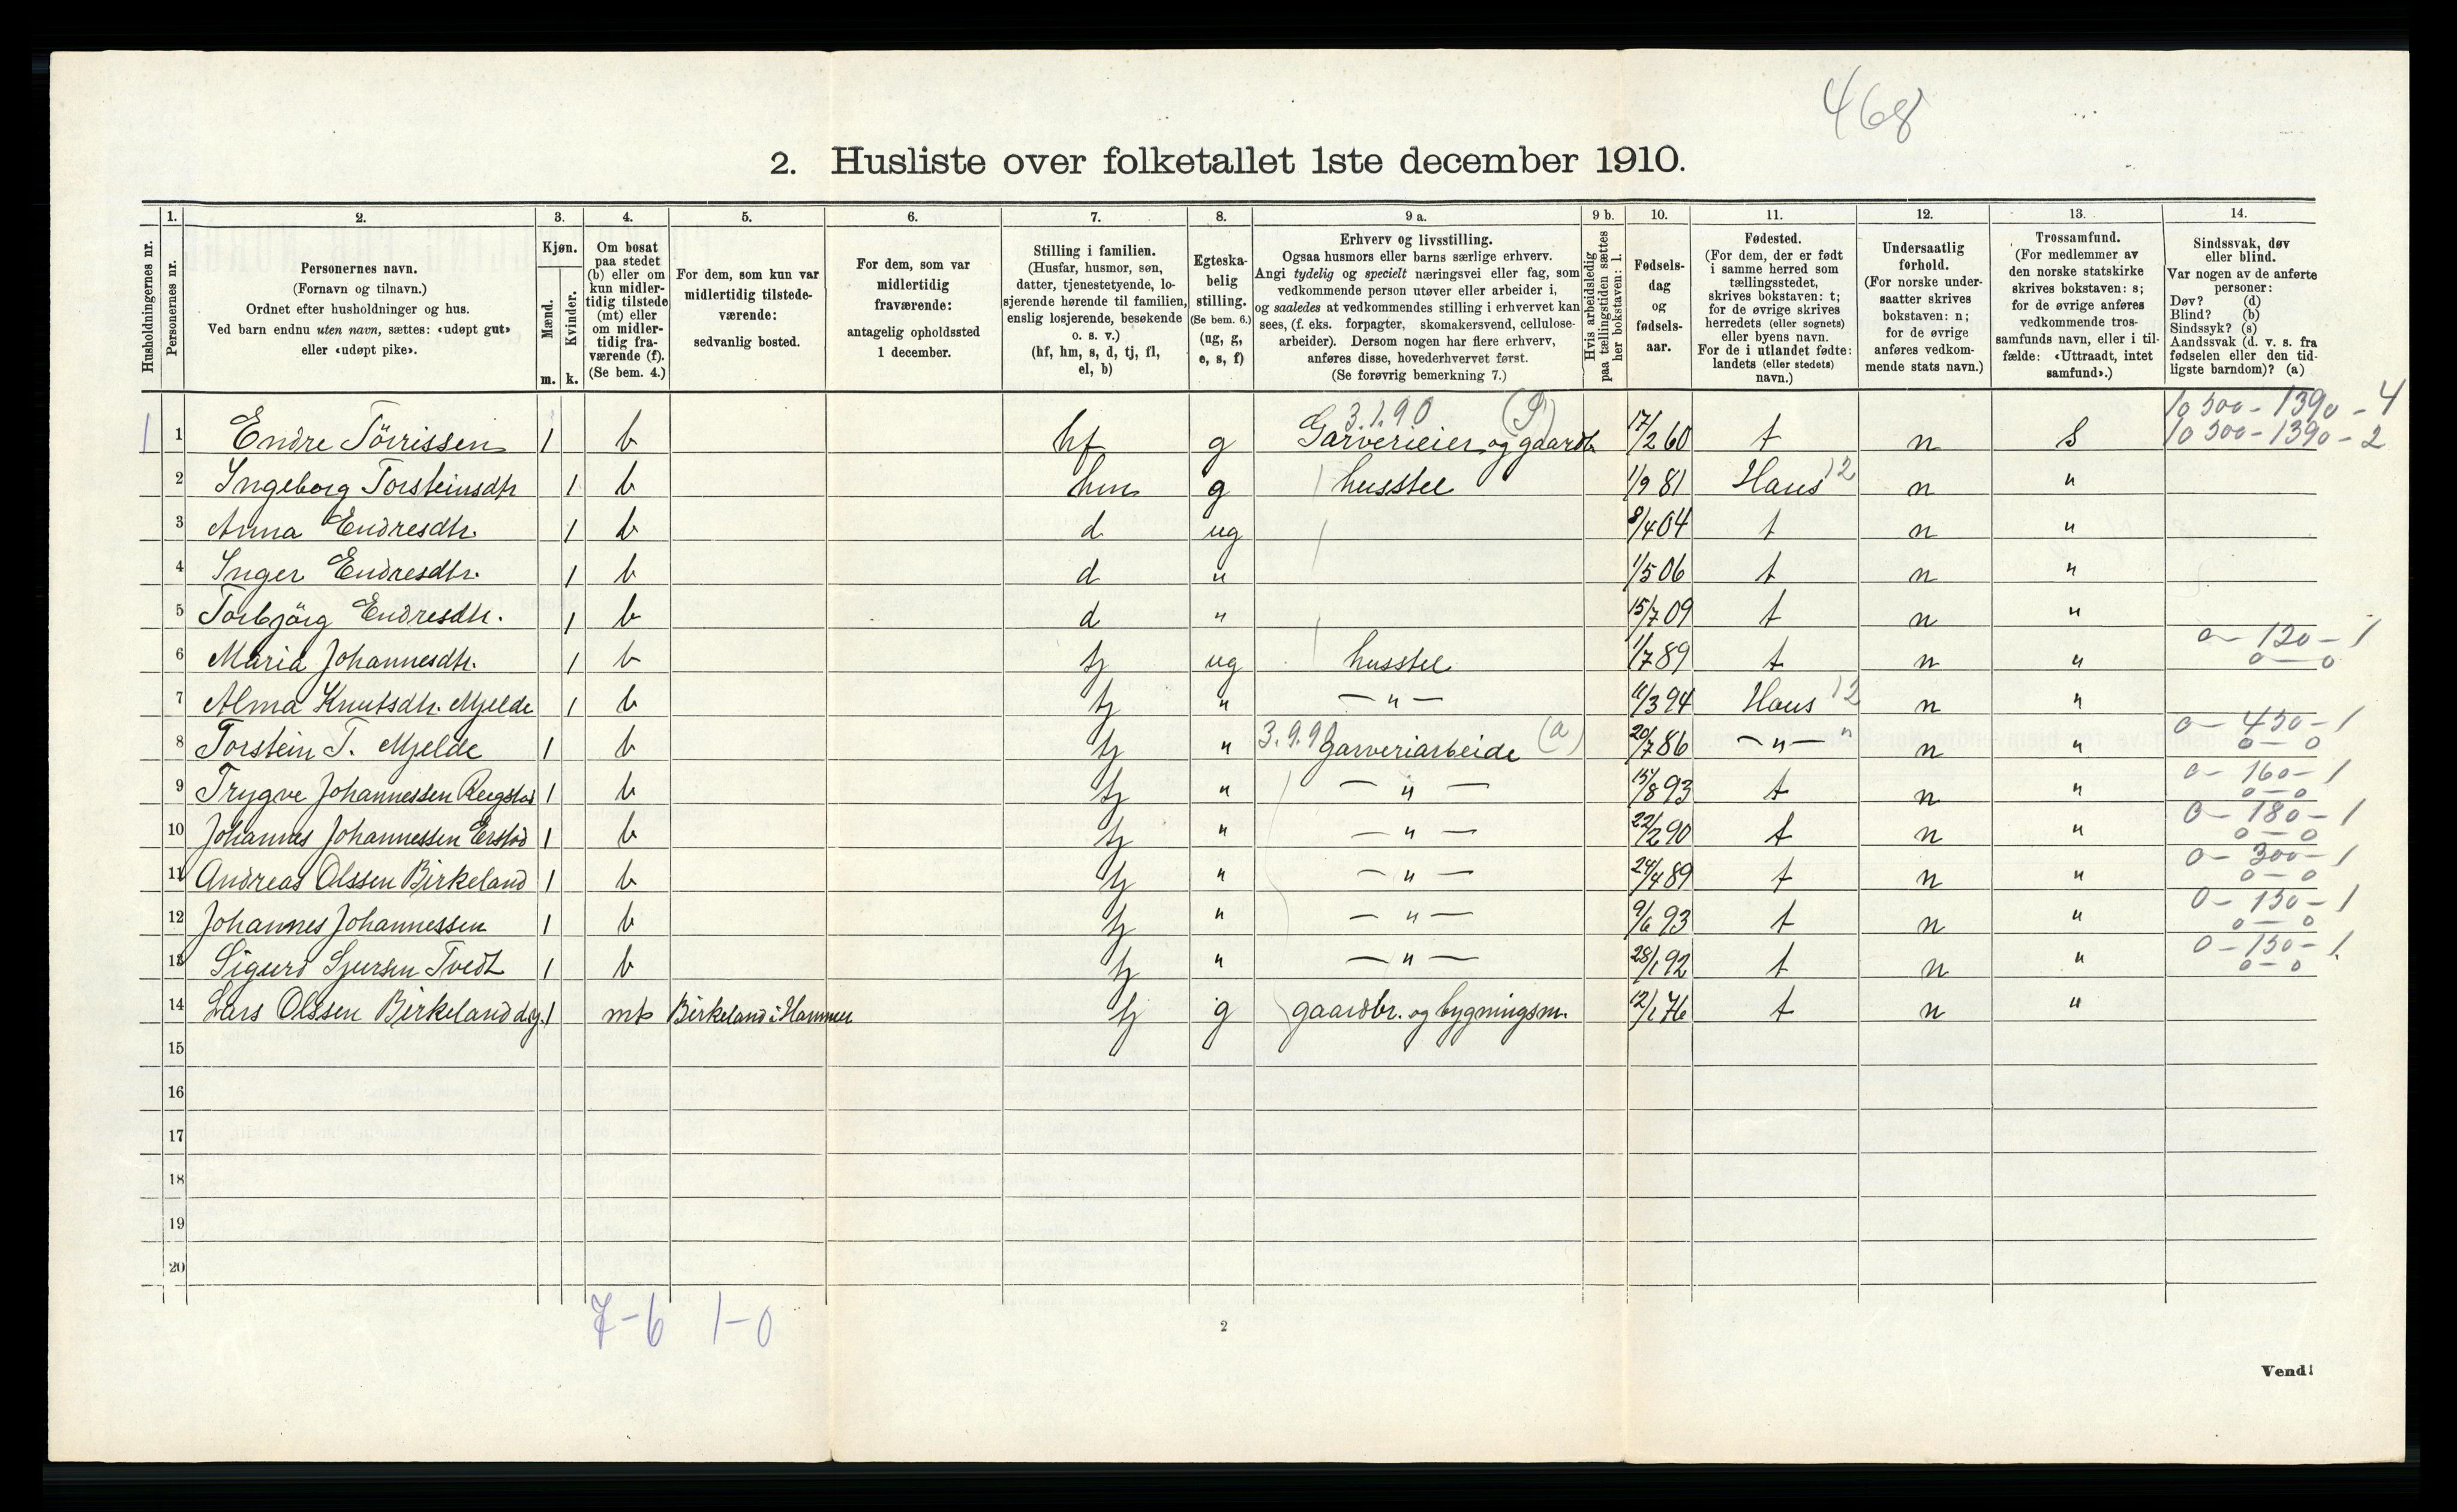 468
2. Husliste over folketallet 1ste december 1910.
Husholdningernes nr.
1. Personernes nr.
2. Personernes navn. (Fornavn og tilnavn.) Ordnet efter husholdninger og hus. Ved barn endnu uten navn, sættes: «udøpt gut» eller «udøpt pike».
3. Kjøn. Mænd. m. Kvinder. k.
4. Om bosat paa stedet (b) eller om kun midlertidig tilstede (mt) eller om midlertidig fraværende (f). (Se bem. 4.)
5. For dem, som kun var midlertidig tilstedeværende: sedvanlig bosted.
6. For dem, som var midlertidig fraværende: antagelig opholdssted 1 december.
7. Stilling i familien. (Husfar, husmor, søn, datter, tjenestetyende, losjerende hørende til familien, enslig losjerende, besøkende o. s. v.) (hf, hm, s, d, tj, fl, el, b)
8. Egteskabelig stilling. (Se bem. 6.) (ug, g, e, s, f)
9 a. Erhverv og livsstilling. Ogsaa husmors eller barns særlige erhverv. Angi tydelig og specielt næringsvei eller fag, som vedkommende person utøver eller arbeider i, og saaledes at vedkommendes stilling i erhvervet kan sees, (f. eks. forpagter, skomakersvend, cellulosearbeider). Dersom nogen har flere erhverv, anføres disse, hovederhvervet først. (Se forøvrig bemerkning 7.)
9 b. Hvis arbeidsledig paa tællingstiden sættes her bokstaven: l.
10. Fødselsdag og fødselsaar.
11. Fødested. (For dem, der er født i samme herred som tællingsstedet, skrives bokstaven: t; for de øvrige skrives herredets (eller sognets) eller byens navn. For de i utlandet fødte: landets (eller stedets) navn.)
12. Undersaatlig forhold. (For norske undersaatter skrives bokstaven: n; for de øvrige anføres vedkommende stats navn.)
13. Trossamfund. (For medlemmer av den norske statskirke skrives bokstaven: s; for de øvrige anføres vedkommende trossamfunds navn, eller i tilfælde: «Uttraadt, intet samfund».)
14. Sindssvak, døv eller blind. Var nogen av de anførte personer: Døv? (d) Blind? (b) Sindssyk? (s) Aandssvak (d. v. s. fra fødselen eller den tidligste barndom)? (a)
3.1.90 (P) 10 500 - 1390 - 4
1 1 Endre Törrissen 1 b hf g Garverieier og gaardb 17/2 60 t n S 10 500 - 1390 - 2
2 Ingeborg Torsteinsdtr 1 b hm g husstel 1/9 81 Haus 12 n "
3 Anna Endresdtr. 1 b d ug 8/4 04 t n "
4 Inger Endresdtr. 1 b d " 1/5 06 t n "
5 Torbjörg Endresdtr. 1 b d " 15/7 09 t n "
6 Maria Johannesdtr. 1 b tj ug husstel 1/7 89 t n " 0 - 120 - 1 0 - 0
7 Alma Knutsdtr. Mjelde 1 b tj " - " - 11/3 94 Haus 12 n "
8 Torstein T. Mjelde 1 b tj " 3.9.9 Garveriarbeide (a) 20/7 86 - " - " n " 0 - 450 - 1 0 - 0
9 Trygve Johannessen 1 b tj " - " - 15/8 93 t n " 0 - 160 - 1 0 - 0
10 Johannes Johannessen 1 b tj " - " - 22/2 90 t n " 0 - 180 - 1 0 - 0
11 Andreas Olssen Birkeland 1 b tj " - " - 24/4 89 t n " 0 - 300 - 1 0 - 0
12 Johannes Johannessen 1 b tj " - " - 9/6 93 t n " 0 - 150 - 1 0 - 0
13 Sigurd Sjursen Tvedt 1 b tj " - " - 28/1 92 t n " 0 - 150 - 1 0 - 0
14 Lars Olssen Birkeland d.y. 1 mt Birkeland i Hammer tj g gaardbr. og bygningsm. 12/1 76 t n "
15
16
17
18
19
20
7-6 1-0
2
Vend!